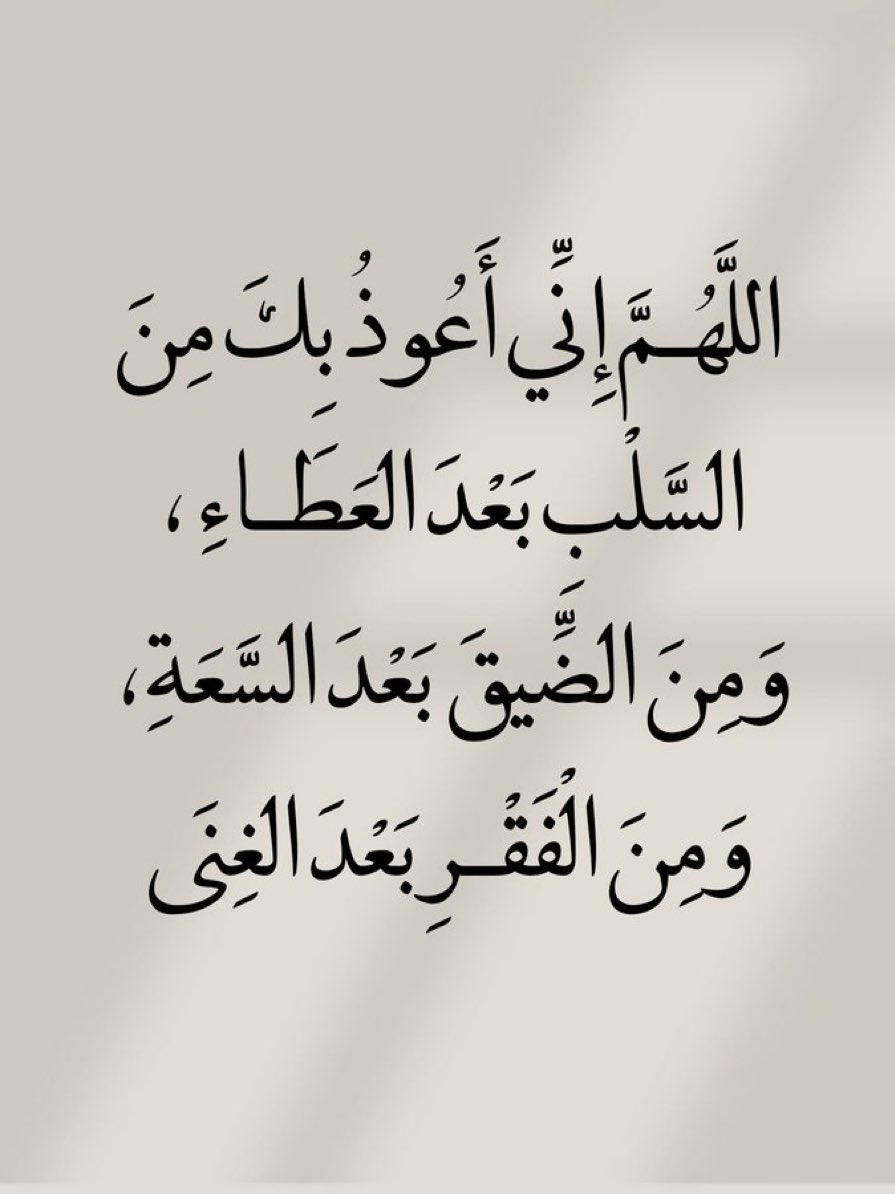 اللَّهُمَّ إِنِّي أَعُوذُ بِكَ مِنَ
السَّلْبِ بَعْدَ العَطَاءِ ،
وَمِنَ الضِّيقَ بَعْدَ السَّعَةِ،
وَمِنَ الْفَقْرِ بَعْدَ الغِنَى